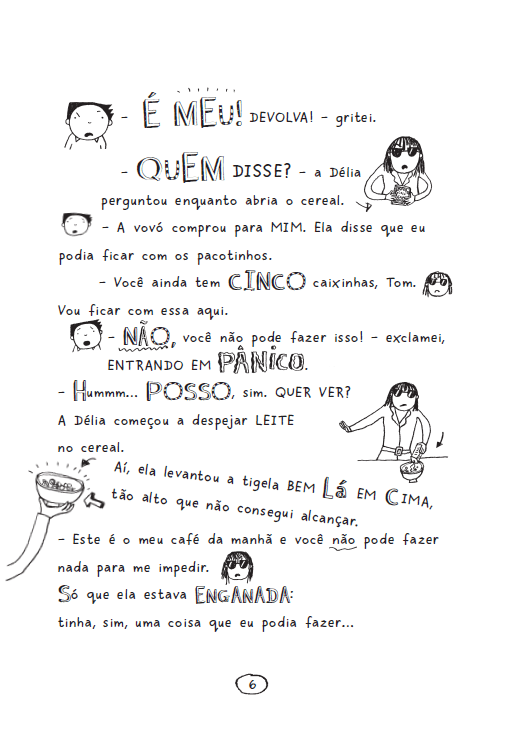 - É MEU! DEVOLVA! - gritei.
- QUEM DISSE? - a Délia
perguntou enquanto abria o cereal.
- A vovó comprou para MIM. Ela disse que eu
podia ficar com os pacotinhos.
- Você ainda tem CINCO caixinhas, Tom.
Vou ficar com essa aqui.
- NÃO, você não pode fazer isso! - exclamei,
ENTRANDO EM PÂNICO.
- Hummm... POSSO, sim. QUER VER?
A Délia começou a despejar LEITE
no cereal.
Aí, ela levantou a tigela BEM Lá EM CIMA,
tão alto que não consegui alcançar.
- Este é o meu café da manhã e você não pode fazer
nada para me impedir.
Só que ela estava ENGANADA:
tinha, sim, uma coisa que eu podia fazer...
6